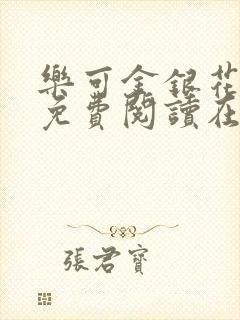 樂可金銀花
免費閱讀在
張君寶